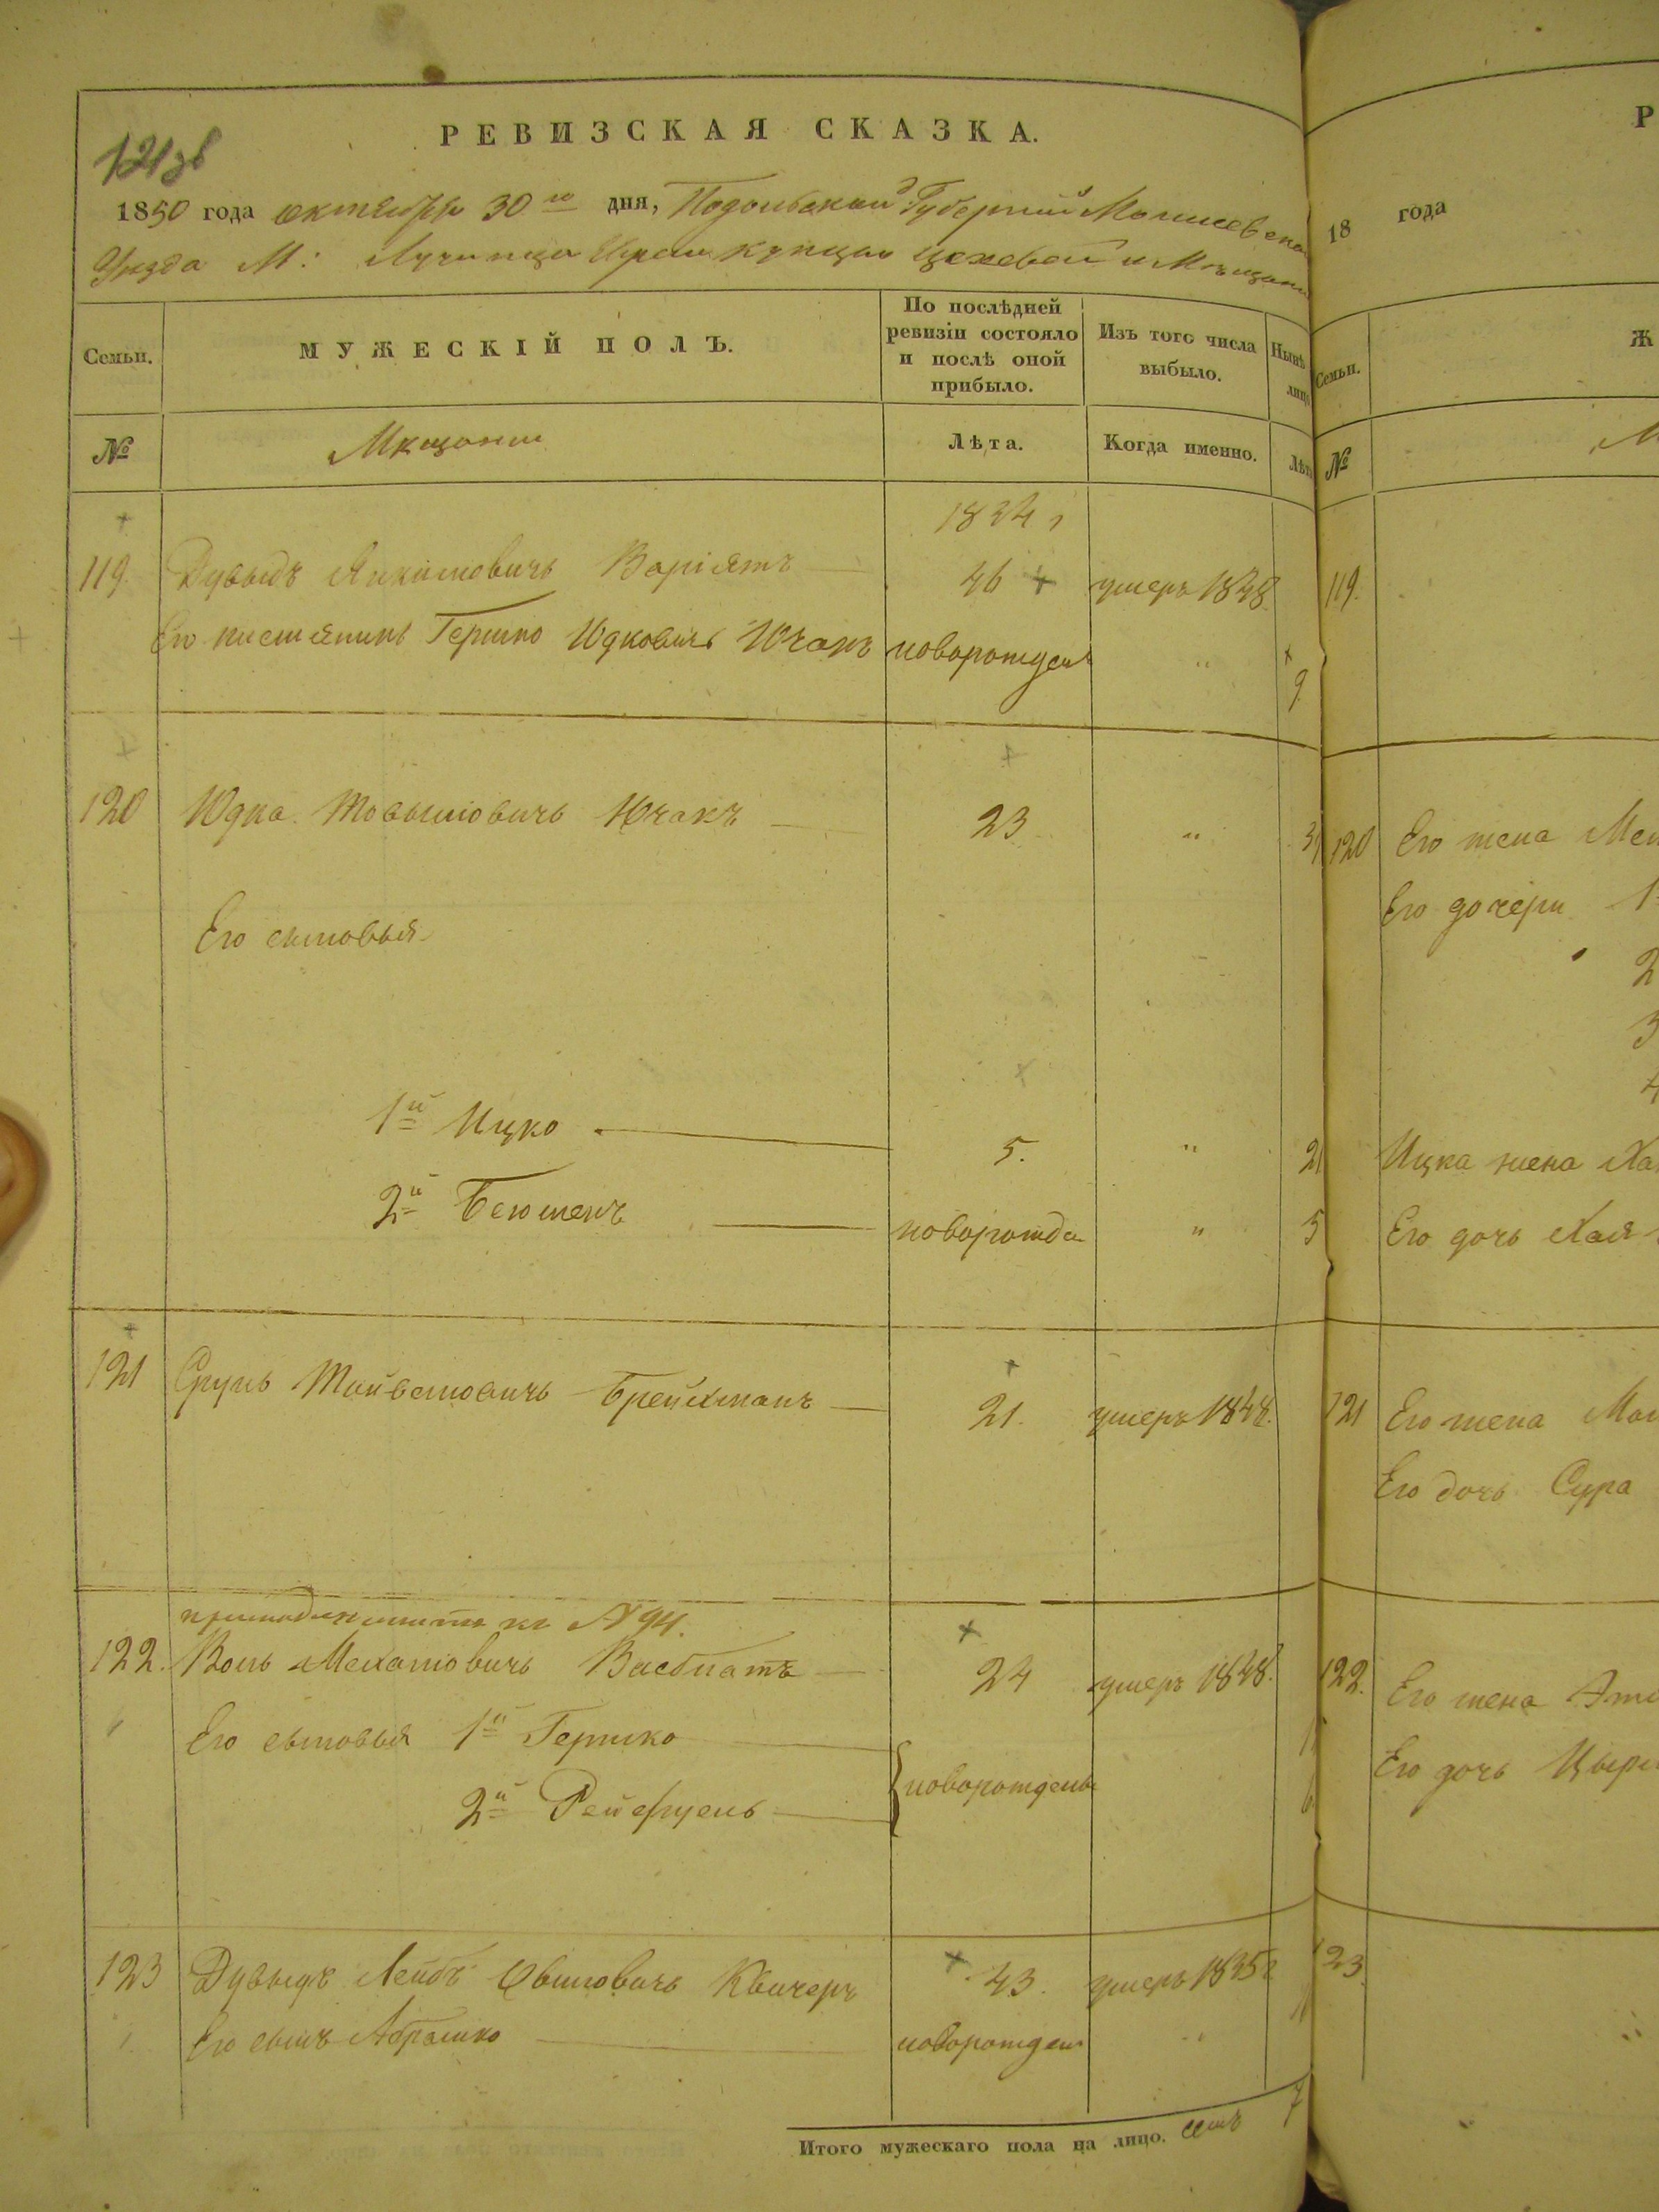 РЕВИЗСКАЯ СКАЗКА.
1850 года октября 30го дня, Подольской Губернии Могилевскаго
Уезда М: Лучинца Евреи купцы цеховой и Мещани
Семьи.
МУЖЕСКІЙ ПОЛЪ.
По послѣдней ревизіи состояло и послѣ оной прибыло.
Изъ того числа выбыло.
Нынѣ лицо
№
Мещани
Лѣта.
Когда именно.
Лѣта
1834 г
119. Дувыдъ Варіятъ 46 умеръ 1848.
Его племянникъ Гершко Юдковичь Южакъ новорожден " 9
120 Юдка Южакъ 23 " 31
Его сыновья
1й Ицко 5. " 21
2й новорожде " 5
121 Сруль Брейтманъ 21. умеръ 1848.
къ № 94.
122. Воль 24 умеръ 1848.
Его сыновья 1й Гершко
2й новорождены
123 Дувыдъ Лейбъ 43. умеръ 1835
Его сынъ Абрамко новорожден "
Итого мужескаго пола на лицо. семь 7
Р
18 года
Семьи.
Ж
№
М
119.
120 Его жена Мен
Его дочери 1
2
3
4
Ицка жена Ха
Его дочь Хая
121 Его жена Мал
Его дочь Сура
122. Его жена Эт
Его дочь Цыр
123.